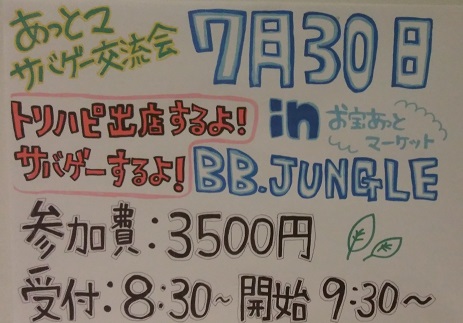 あっとマ
サバゲー交流会
7月30日
トリハピ出店するよ!
サバゲーするよ!
in
お宝あっと
マーケット
BB.JUNGLE
参加費:3500円
受付:8:30~ 開始 9:30~